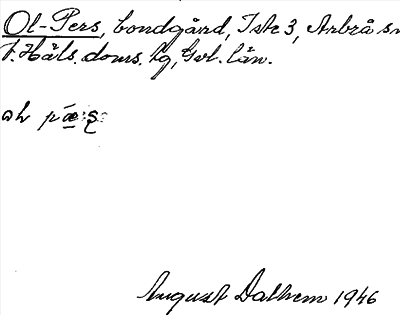 Ol-Pers, bondgård, Iste 3, Arbrå sn
V. Häls. doms. tg, Gvl. län.
August Dalhem 1946